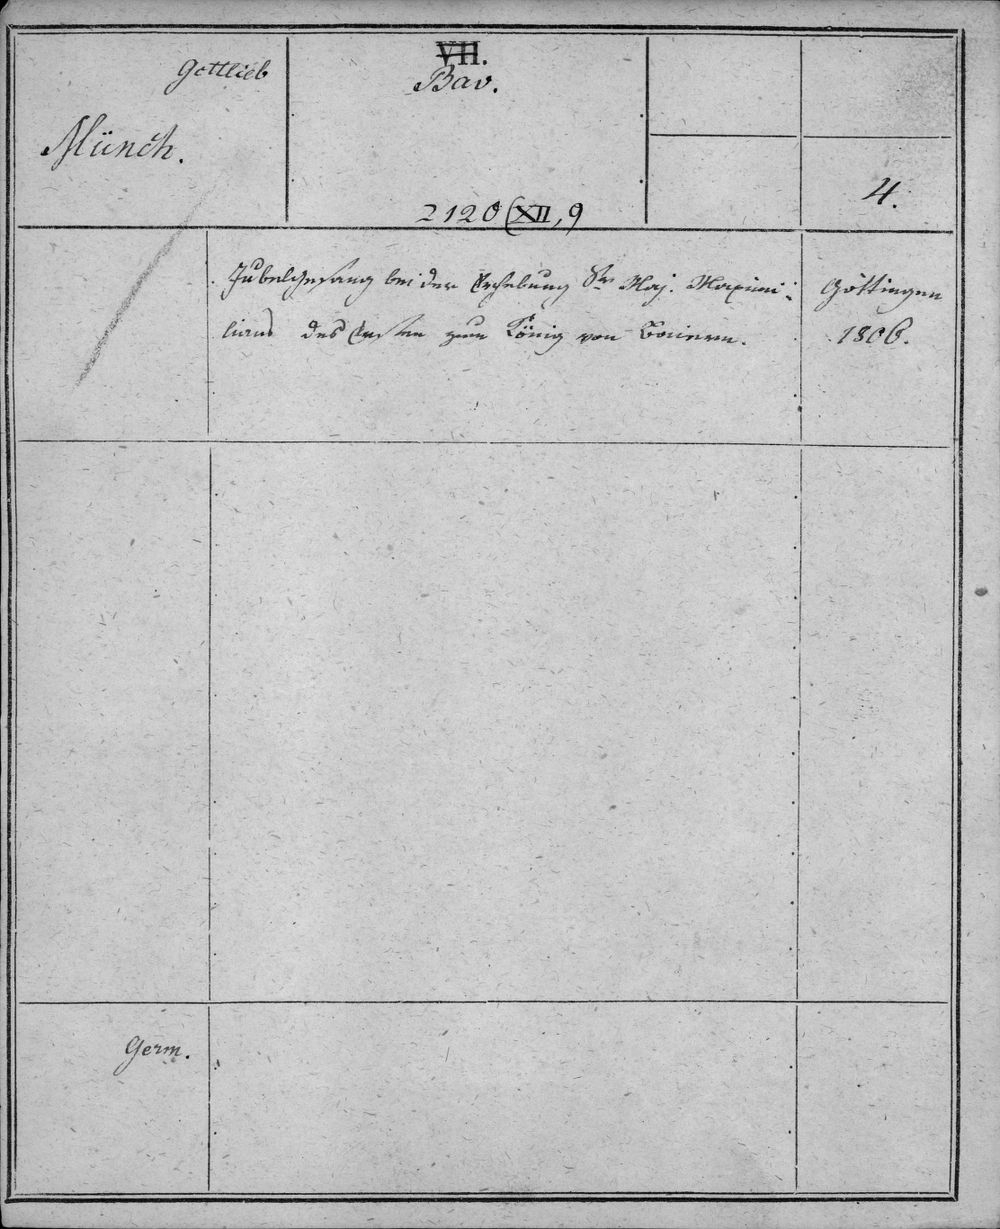 Gottlieb
Münch.
VII.
Bav.
2120 (XII, 9
4.
Jubelgesang bei der Erhebung Sr Maj. Maximi-
lians des Ersten zum König von Baiern.
Göttingen
1806.
Germ.